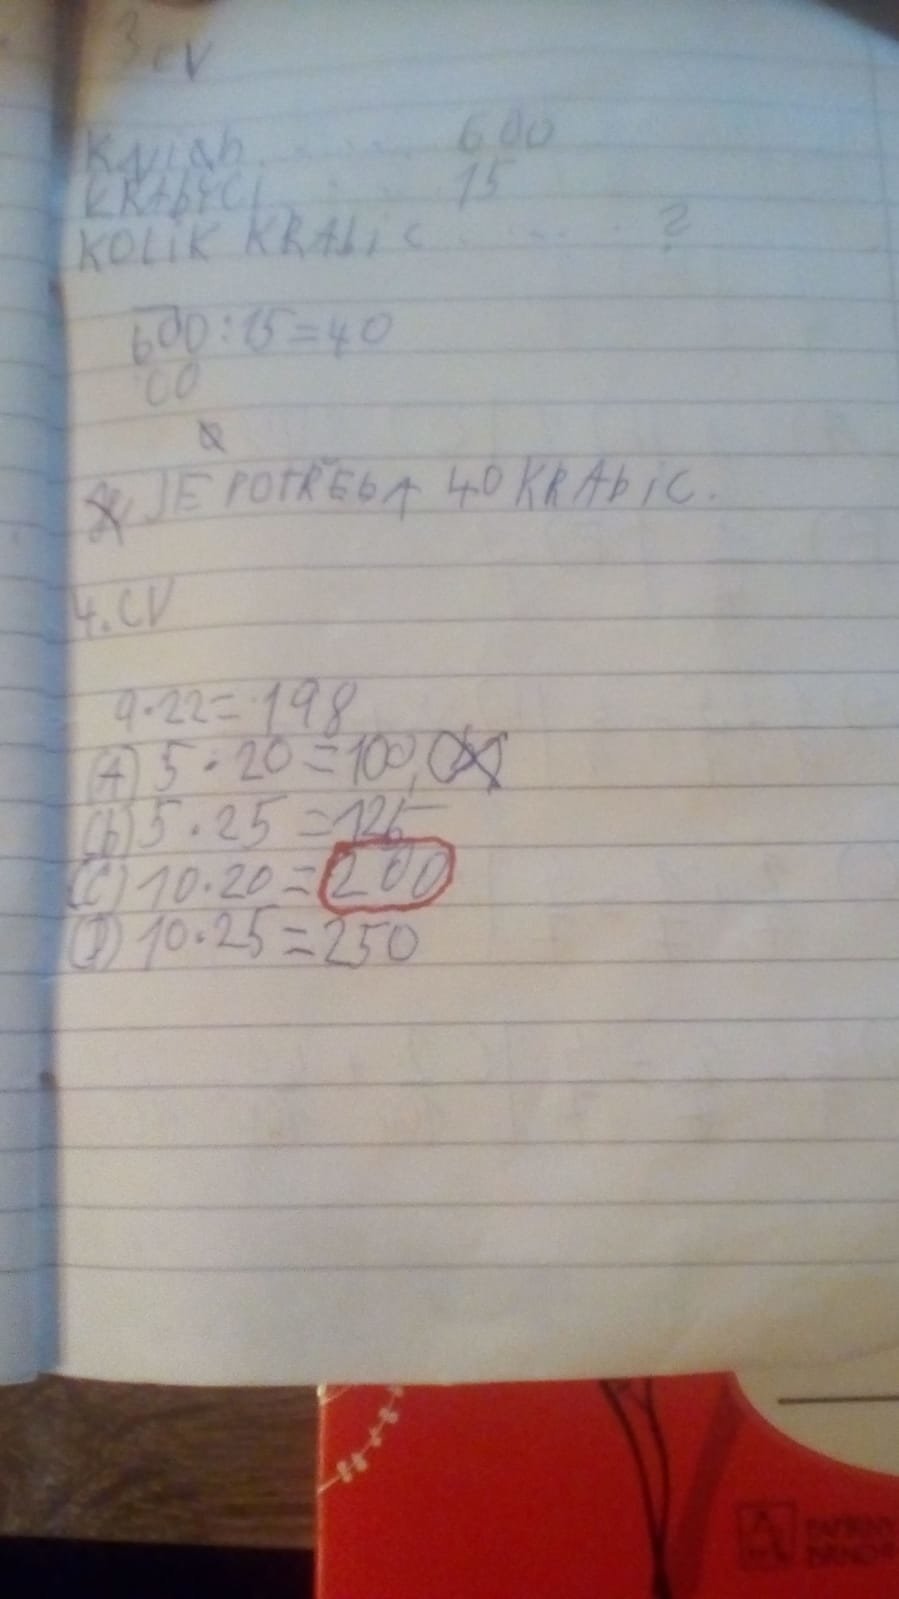 3 CV
KNIAH ........ 600
KRAbYCI ........ 15
KOLIK KRAbIC ........ ?
600:15=40
00
JE POTŘEbA 40 KRAbIC.
4.CV
9·22=198
(A) 5·20=100
(b) 5·25=125
(C) 10·20=200
(D) 10·25=250